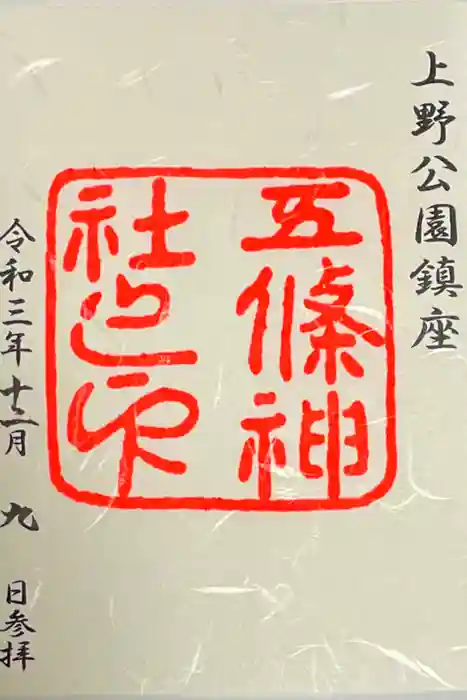 上野公園鎮座
五條神
社之印
令和三年十二月九日参拝